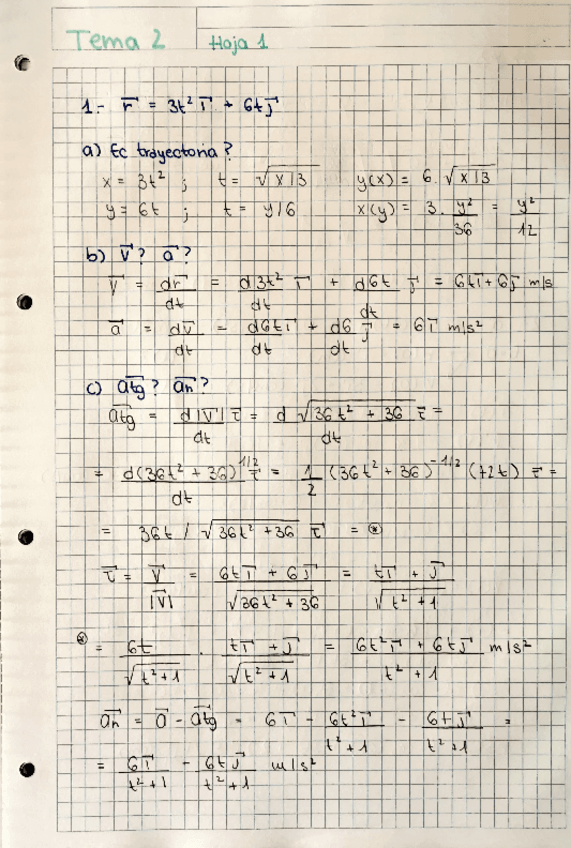 Tema 2 Hoja 1
1.- r⃗ = 3t² i⃗ + 6t j⃗
a) Ec trayectoria?
x = 3t² ; t = √(x/3) y(x) = 6·√(x/3)
y = 6t ; t = y/6 x(y) = 3·y²/36 = y²/12
b) v⃗? a⃗?
v⃗ = dr⃗/dt = d3t²/dt i⃗ + d6t/dt j⃗ = 6t i⃗ + 6 j⃗ m/s
a⃗ = dv⃗/dt = d6t i⃗/dt + d6/dt j⃗ = 6 i⃗ m/s²
c) a⃗tg? a⃗n?
a⃗tg = d|v⃗|/dt τ⃗ = d√(36t² + 36)/dt τ⃗ =
= d(36t² + 36)^1/2/dt τ⃗ = 1/2 (36t² + 36)^-1/2 (72t) τ⃗ =
= 36t / √(36t² + 36) τ⃗ = ⊛
τ⃗ = v⃗/|v⃗| = (6t i⃗ + 6 j⃗)/√(36t² + 36) = (t i⃗ + j⃗)/√(t² + 1)
⊛ = 6t/√(t² + 1) · (t i⃗ + j⃗)/√(t² + 1) = (6t² i⃗ + 6t j⃗)/(t² + 1) m/s²
a⃗n = a⃗ - a⃗tg = 6 i⃗ - 6t² i⃗/(t² + 1) - 6t j⃗/(t² + 1) =
= 6 i⃗/(t² + 1) - 6t j⃗/(t² + 1) m/s²